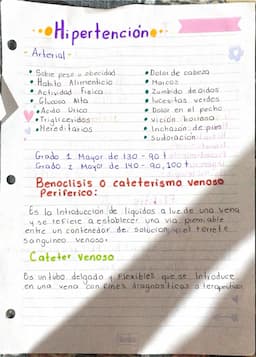 Hipertención
- Arterial -
• Sobre peso u obecidad
• Habito Alimenticio
• Actividad Fisica
• Glucosa Alta
• Acido Urico
• Trigliceridos
• Hereditarios
• Dolor de cabeza
• Mareos
• Zumbido de oidos
• lucesitas verdes
• Dolor en el pecho
• Vición borrosa
• Inchazon de pies
• Sudoración
Grado 1 Mayor de 130 - 90
Grado 2 Mayor de 140 - 90, 100
Benoclisis o cateterismo venoso
Periferico:
Es la Introducción de liquidos a luz de una vena
y se refiere a establecer una via permiable
entre un contenedor de solución y el torrete
sanguineo venoso.
Cateter venoso
Es un tubo delgado y Flexibles que se Introduce
en una vena con Fines diagnosticas o terapeutico